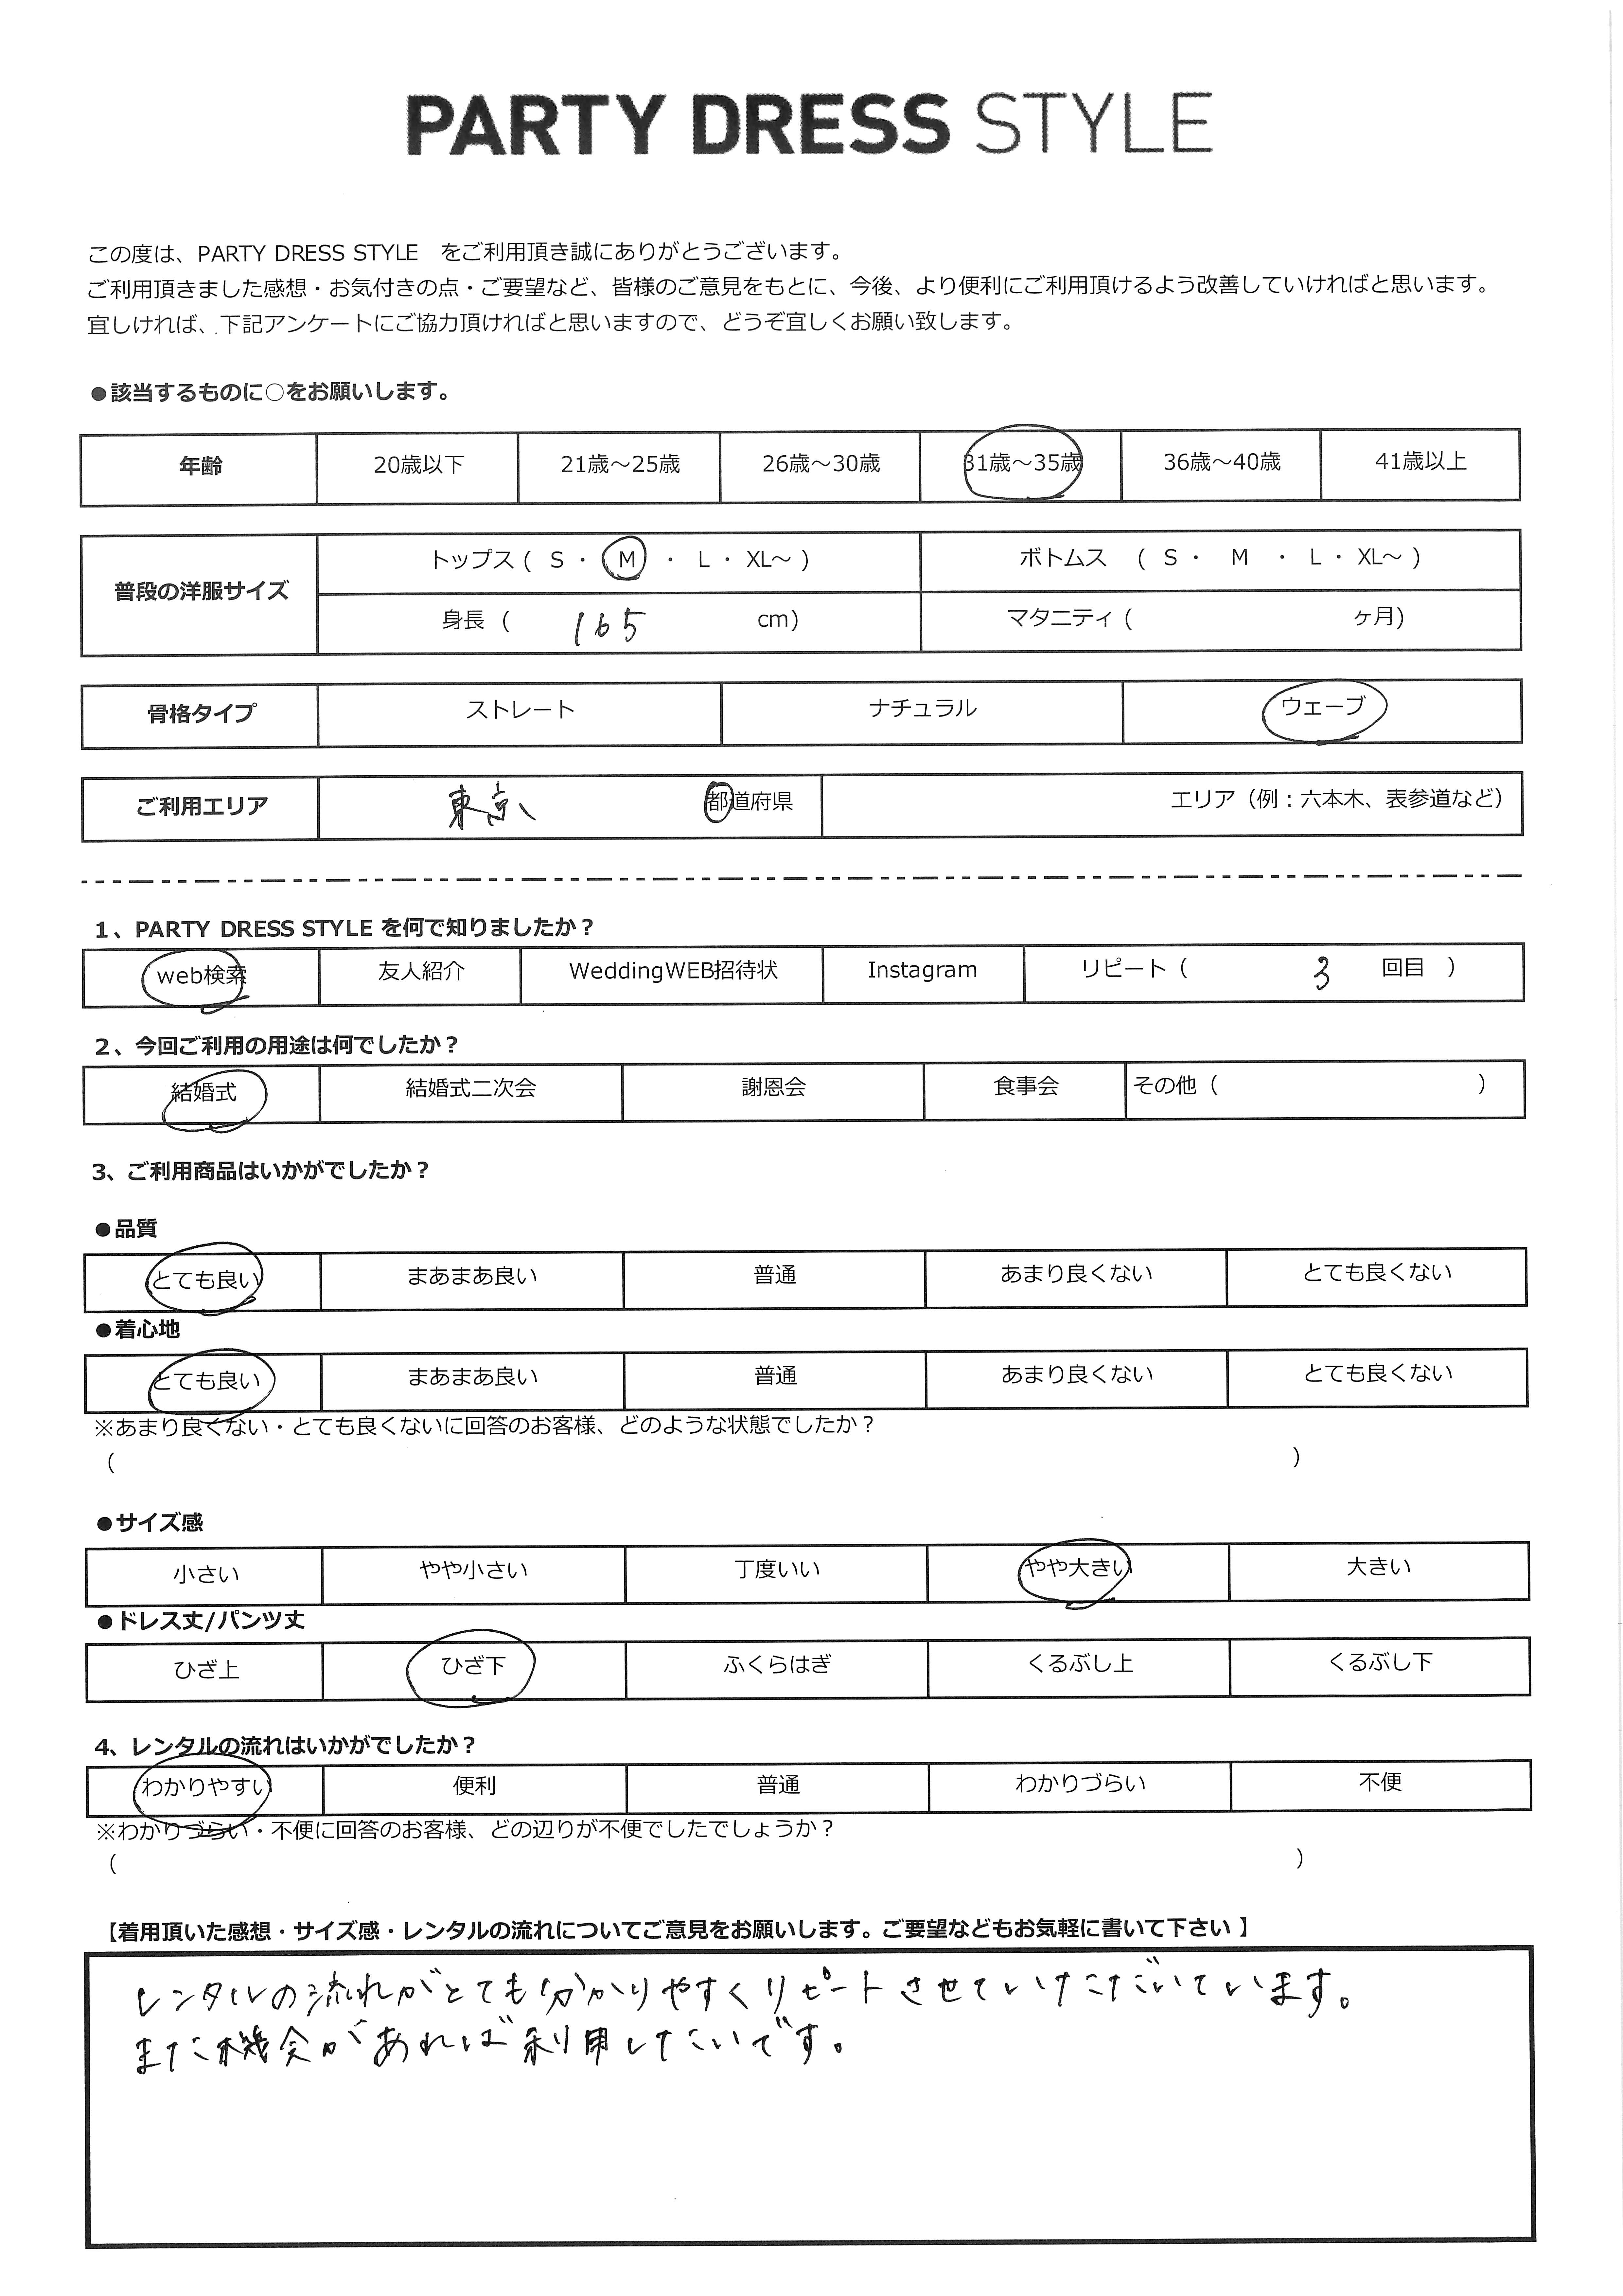 PARTY DRESS STYLE
この度は、PARTY DRESS STYLE　をご利用頂き誠にありがとうございます。
ご利用頂きました感想・お気付きの点・ご要望など、皆様のご意見をもとに、今後、より便利にご利用頂けるよう改善していければと思います。
宜しければ、下記アンケートにご協力頂ければと思いますので、どうぞ宜しくお願い致します。
●該当するものに○をお願いします。
年齢 20歳以下 21歳～25歳 26歳～30歳 31歳～35歳 36歳～40歳 41歳以上
普段の洋服サイズ
トップス ( S ・ M ・ L ・ XL～ ) ボトムス ( S ・ M ・ L ・ XL～ )
身長 ( 165 cm) マタニティ ( ヶ月)
骨格タイプ ストレート ナチュラル ウェーブ
ご利用エリア 東京 都道府県 エリア（例：六本木、表参道など）
1、PARTY DRESS STYLE を何で知りましたか？
web検索 友人紹介 WeddingWEB招待状 Instagram リピート（ 3 回目 ）
2、今回ご利用の用途は何でしたか？
結婚式 結婚式二次会 謝恩会 食事会 その他（ ）
3、ご利用商品はいかがでしたか？
●品質
とても良い まあまあ良い 普通 あまり良くない とても良くない
●着心地
とても良い まあまあ良い 普通 あまり良くない とても良くない
※あまり良くない・とても良くないに回答のお客様、どのような状態でしたか？
（ ）
●サイズ感
小さい やや小さい 丁度いい やや大きい 大きい
●ドレス丈/パンツ丈
ひざ上 ひざ下 ふくらはぎ くるぶし上 くるぶし下
4、レンタルの流れはいかがでしたか？
わかりやすい 便利 普通 わかりづらい 不便
※わかりづらい・不便に回答のお客様、どの辺りが不便でしたでしょうか？
（ ）
【着用頂いた感想・サイズ感・レンタルの流れについてご意見をお願いします。ご要望などもお気軽に書いて下さい 】
レンタルの流れがとても分かりやすくリピートさせていただいています。
また機会があれば利用したいです。